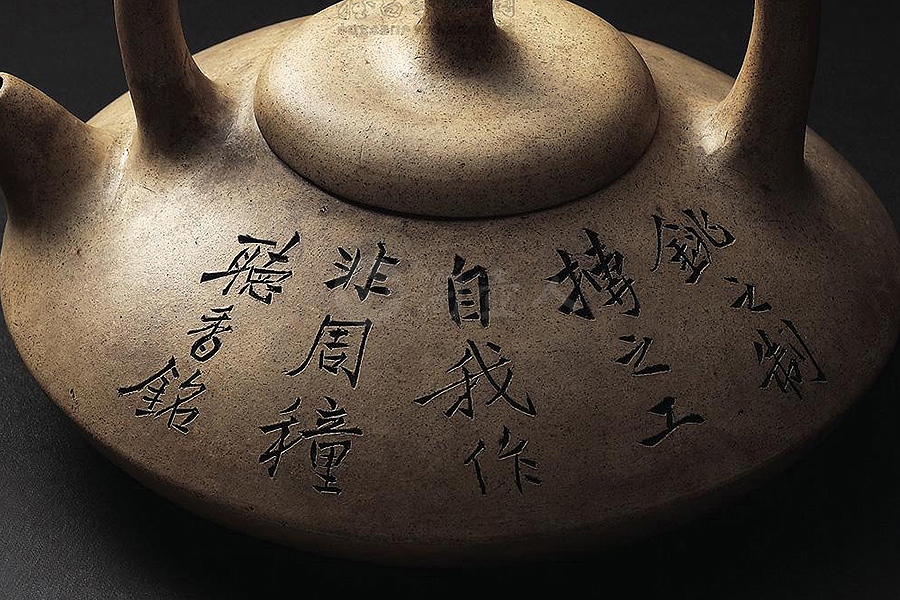 銚之制
摶之工
自我作
非周穜
聽香銘